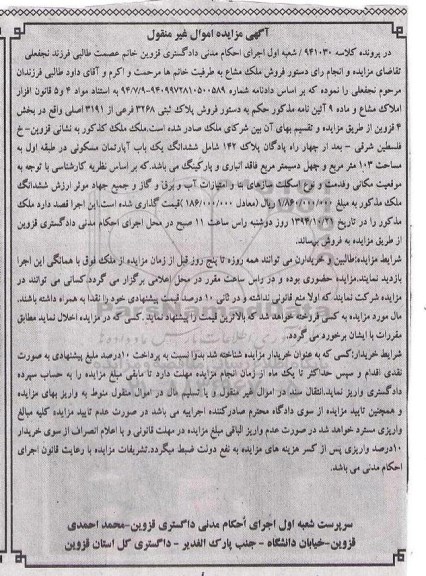 آگهی مزایده اموال غیر منقول
در پرونده کلاسه ۹۴۱۰۳۰ / شعبه اول اجرای احکام مدنی دادگستری قزوین خانم عصمت طالبی فرزند نجفعلی
تقاضای مزایده و انجام رای دستور فروش ملک مشاع به طرفیت خانم ها مرحمت و اکرم و آقای داود طالبی فرزندان
مرحوم نجفعلی را نموده که بر اساس دادنامه شماره ۹۴۰۹۹۷۲۸۱۰۵۰۰۵۸۹-۹۴/۷/۹ به استناد مواد ۴ و۵ قانون افراز
املاک مشاع و ماده ۹ آئین نامه مذکور حکم به دستور فروش پلاک ثبتی ۳۲۶۸ فرعی از ۳۱۹۱ اصلی واقع در بخش
۴ قزوین از طریق مزایده و تقسیم بهای آن بین شرکای ملک صادر شده است.ملک ملک کذکور به نشانی قزوین- خ
فلسطین شرقی - بعد از چهار راه پادگان پلاک ۱۴۲ شامل ششدانگ یک باب آپارتمان مسکونی در طبقه اول به
مساحت ۱۰۳ متر مربع و چهل دسیمتر مربع فاقد انباری و پارکینگ می باشد.که بر اساس نظریه کارشناسی با توجه به
موقعیت مکانی وقدمت و نوع اسکلت سازهای بنا و امتیازات آب و برق و گاز و جمیع جهاد موثر ارزش ششدانگ
ملک مذکور به مبلغ ۱/۸۶۰/۰۰۰/۰۰۰ ریال (معادل ۱۸۶/۰۰۰/۰۰۰ )قیمت گذاری شده است.این اجرا قصد دارد ملک
مذکور را در تاریخ ۱۳۹۴/۱۰/۲۱ روز دوشنبه راس ساعت ۱۱ صبح در محل اجرای احکام مدنی دادگستری قزوین
از طریق مزایده به فروش برساند.
شرایط مزایده:طالبین و خریدارن می توانند همه روزه تا پنج روز قبل از زمان مزایده از ملک فوق با همانگی این اجرا
بازدید نمایند.مزایده حضوری بوده و در راس ساعت مقرر در محل اعلامی برگزار می گردد.کسانی می توانند در
مزایده شرکت نمایند که اولا منع قانونی نداشته و در ثانی ۱۰ درصد قیمت پیشنهادی خود را نقدا به همراه داشته باشند.
مال مورد مزایده به کسی فروخته خواهد شد که بالاترین قیمت را پیشنهاد نماید .کسی که در مزایده اخلال نماید مطابق
مقررات با ایشان برخورد می گردد.
شرایط خریدار:کسی که به عنوان خریدار مزایده شناخته شد بدوا نسبت به پرداخت ۱۰درصد ملبغ پیشنهادی به صورت
نقدی اقدام و سپس حداکثر تا یک ماه از زمان انجام مزایده مهلت دارد تا مابقی مبلغ مزایده را به حساب سپرده
دادگستری واریز نماید.انتقال سند در اموال غیر منقول و یا تسلیم مال در اموال منقول منوط به واریز بهای مزایده
و همچنین تایید مزایده از سوی دادگاه محترم صادرکننده اجراییه می باشد در صورت عدم تایید مزایده کلیه مبالغ
واریزی مسترد خواهد شد در صورت عدم واریز الباقی مبلغ مزایده در مهلت قانونی و با اعلام انصراف از سوی خریدار
۱۰درصد واریزی پس از کسر هزینه های مزایده به نفع دولت ضبط میگردد.تشریفات مزایده با رعایت قانون اجرای
احکام مدنی می باشد.
سرپرست شعبه اول اجرای احکام مدنی داگستری قزوین-محمد احمدی
قزوین-خیابان دانشگاه - جنب پارک الغدیر - داگستری کل استان قزوین